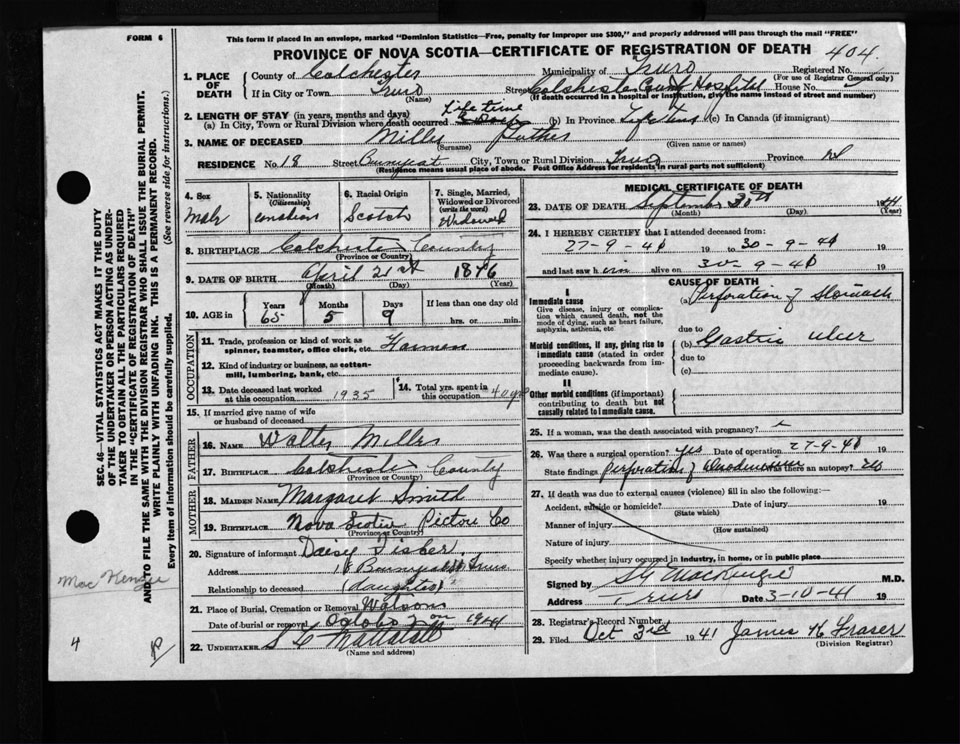 FORM 6
This form if placed in an envelope, marked "Dominion Statistics—Free, penalty for improper use $300," and properly addressed will pass through the mail "FREE"
PROVINCE OF NOVA SCOTIA—CERTIFICATE OF REGISTRATION OF DEATH 404.
1. PLACE OF DEATH
County of Colchester Municipality of Truro Registered No.
(For use of Registrar General only)
If in City or Town Truro Street Colchester County Hospital House No.
(Name) (If death occurred in a hospital or institution, give the name instead of street and number)
2. LENGTH OF STAY (in years, months and days) Life time
(a) In City, Town or Rural Division where death occurred (b) In Province Life time (c) In Canada (if immigrant)
3. NAME OF DECEASED Miller
(Surname) (Given name or names)
RESIDENCE No. 18 Street City, Town or Rural Division Truro Province NS
(Residence means usual place of abode. Post Office Address for residents in rural parts not sufficient)
4. Sex Male
5. Nationality (Citizenship) Canadian
6. Racial Origin Scotch
7. Single, Married, Widowed or Divorced (write the word) Widowed
8. BIRTHPLACE Colchester County
(Province or County)
9. DATE OF BIRTH April 21st 1876
(Month) (Day) (Year)
10. AGE in Years 65 Months 5 Days 9 If less than one day old hrs. or min.
OCCUPATION
11. Trade, profession or kind of work as spinner, teamster, office clerk, etc. Farmer
12. Kind of industry or business, as cotton-mill, lumbering, bank, etc.
13. Date deceased last worked at this occupation 1935
14. Total yrs. spent in this occupation 40 yrs
15. If married give name of wife or husband of deceased
FATHER
16. NAME Walter Miller
17. BIRTHPLACE Colchester County
(Province or County)
MOTHER
18. MAIDEN NAME Margaret Smith
19. BIRTHPLACE Nova Scotia Pictou Co
(Province or County)
20. Signature of informant Daisy Fisher
Address 18 Truro
Relationship to deceased (daughter)
21. Place of Burial, Cremation or Removal
Date of burial or removal October 2nd
22. UNDERTAKER
(Name and address)
MEDICAL CERTIFICATE OF DEATH
23. DATE OF DEATH September 30th 1941
(Month) (Day) (Year)
24. I HEREBY CERTIFY that I attended deceased from:
27-9-41 19 to 30-9-41 19
and last saw him alive on 30-9-41 19
CAUSE OF DEATH
I
Immediate cause
Give disease, injury or complication which caused death, not the mode of dying, such as heart failure, asphyxia, asthenia, etc.
(a) Perforation of Stomach
due to
Morbid conditions, if any, giving rise to immediate cause (stated in order proceeding backwards from immediate cause).
(b) Gastric ulcer
due to
(c)
II
Other morbid conditions (if important) contributing to death but not causally related to immediate cause.
25. If a woman, was the death associated with pregnancy?
26. Was there a surgical operation? Yes Date of operation 27-9-41
State findings Perforation of was there an autopsy? No
27. If death was due to external causes (violence) fill in also the following:—
Accident, suicide or homicide? Date of injury 19
(State which)
Manner of injury
(How sustained)
Nature of injury
Specify whether injury occurred in industry, in home, or in public place
Signed by MacKenzie M.D.
Address Truro Date 3-10-41 19
28. Registrar's Record Number
29. Filed Oct 3rd 1941 James H Fraser
(Division Registrar)
SEC. 46—VITAL STATISTICS ACT MAKES IT THE DUTY
OF THE UNDERTAKER OR PERSON ACTING AS UNDERTAKER TO OBTAIN ALL THE PARTICULARS REQUIRED
IN THE "CERTIFICATE OF REGISTRATION OF DEATH"
AND TO FILE THE SAME WITH THE DIVISION REGISTRAR WHO SHALL ISSUE THE BURIAL PERMIT.
WRITE PLAINLY WITH UNFADING INK. THIS IS A PERMANENT RECORD.
Every item of information should be carefully supplied. (See reverse side for instructions.)
MacKenzie
4